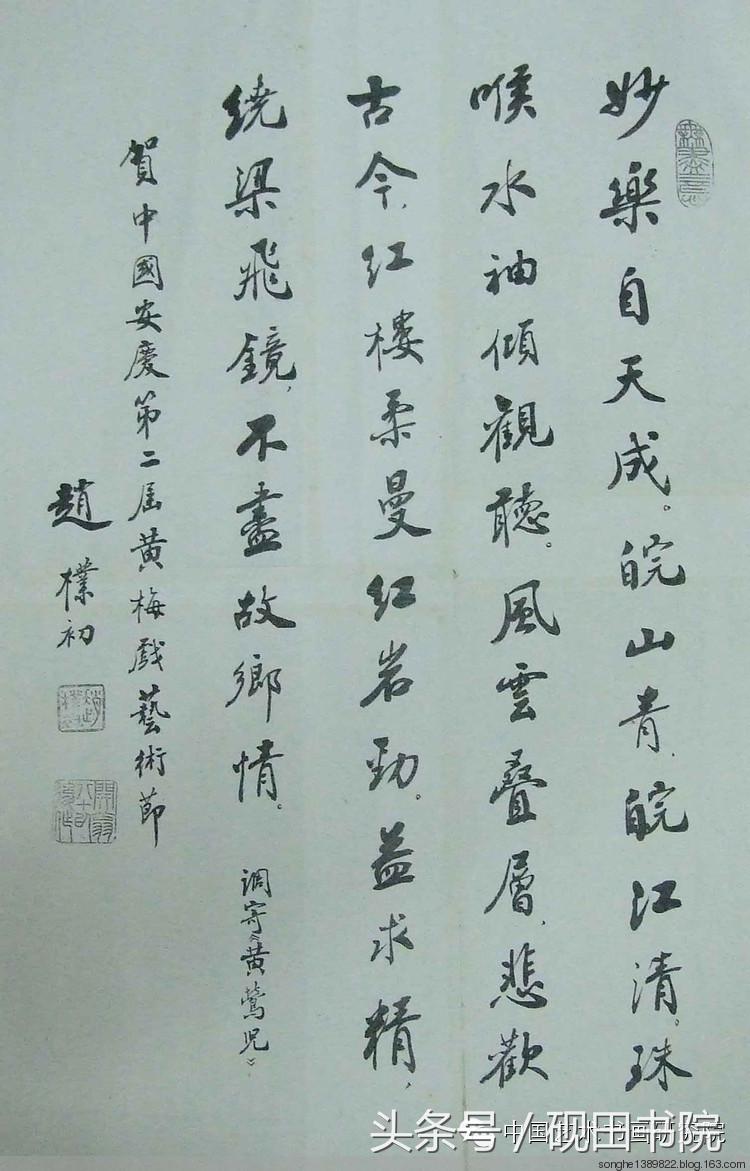 妙樂自天成。皖山青，皖江清。珠
喉水袖傾觀聽。風雲疊層，悲歡
古今，红樓柔曼红岩勁。益求精，
繞梁飛鏡，不盡故鄉情。
调寄《黄鶯児》
賀中國安慶第二届黄梅戲藝術節
趙樸初
头条号/砚田书院
songhe1389822.blog.163.com